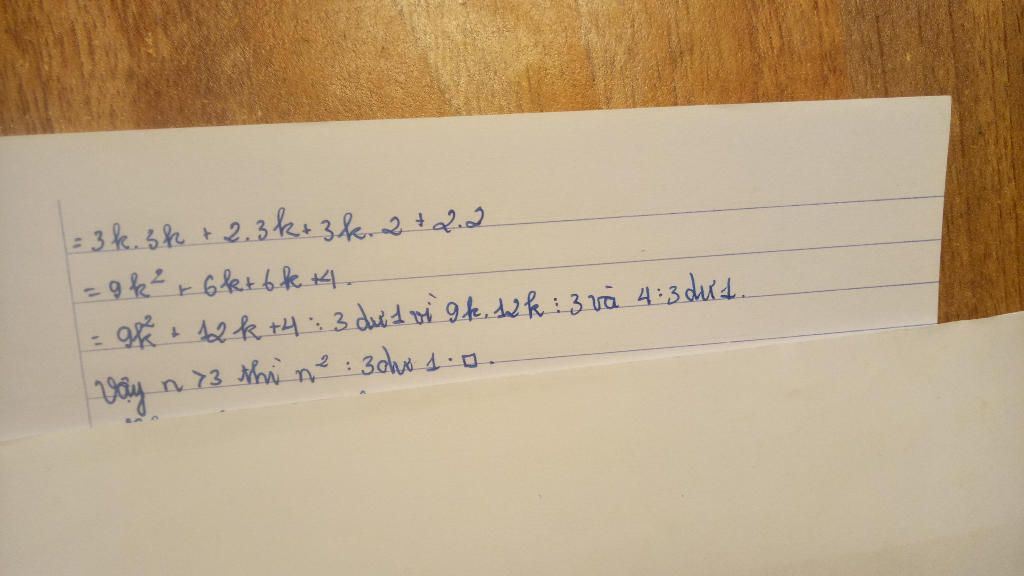 = 3k.3k + 2.3k + 3k.2 + 2.2
= 9k² + 6k + 6k + 4.
= 9k² + 12k + 4 : 3 dư 1 vì 9k, 12k ⋮ 3 và 4 : 3 dư 1.
Vậy n > 3 thì n² : 3 dư 1. □.